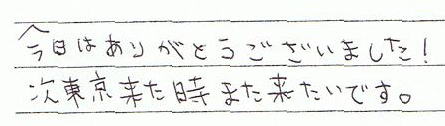 今日はありがとうございました!
次東京来た時また来たいです。